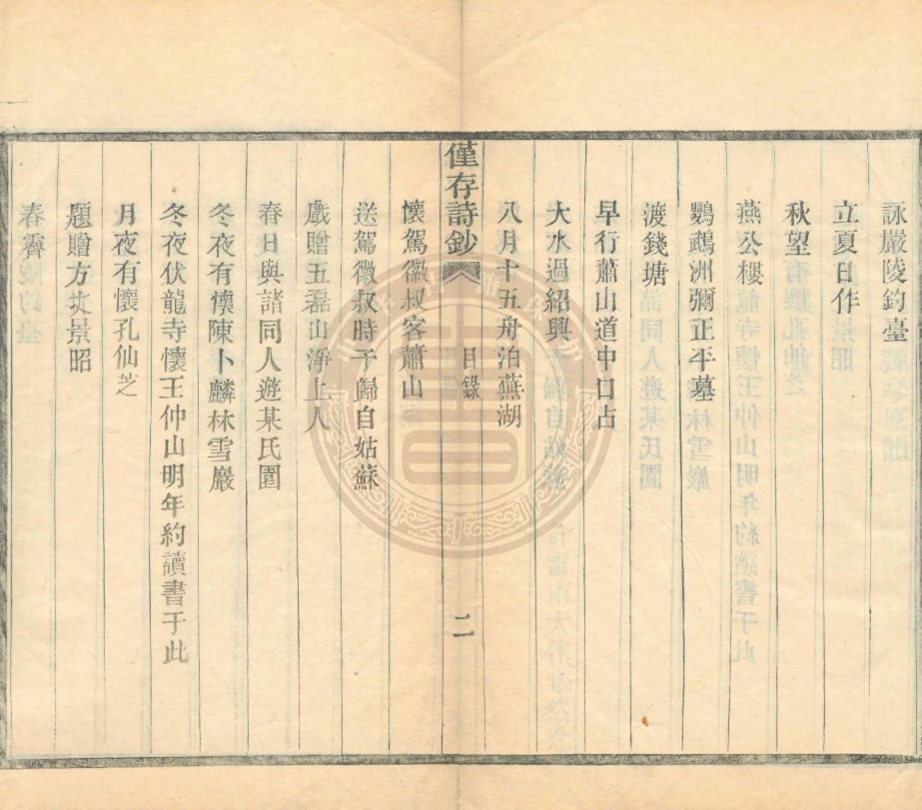 詠嚴陵釣臺
立夏日作
秋望
燕公樓
鸚鵡洲彌正平墓
渡錢塘
早行蕭山道中口占
大水過紹興
八月十五舟泊蕪湖
僅存詩鈔 目錄 二
懷駕徽叔客蕭山
送駕徽叔時予歸自姑蘇
戲贈五磊山淨上人
春日與諸同人遊某氏園
冬夜有懷陳卜麟林雪巖
冬夜伏龍寺懷王仲山明年約讀書于此
月夜有懷孔仙芝
題贈方丈景昭
春霽